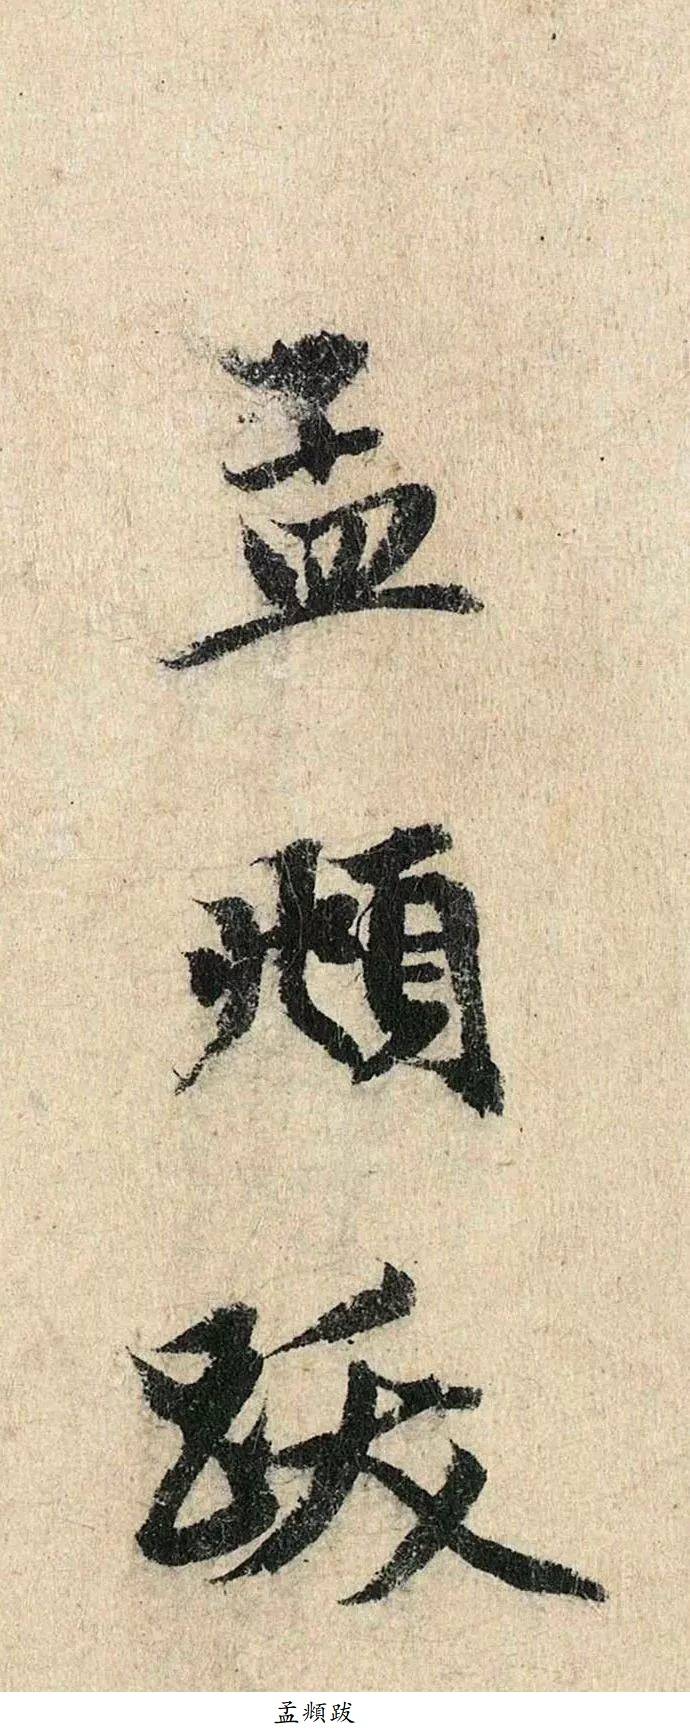 孟頫跋
孟頫跋